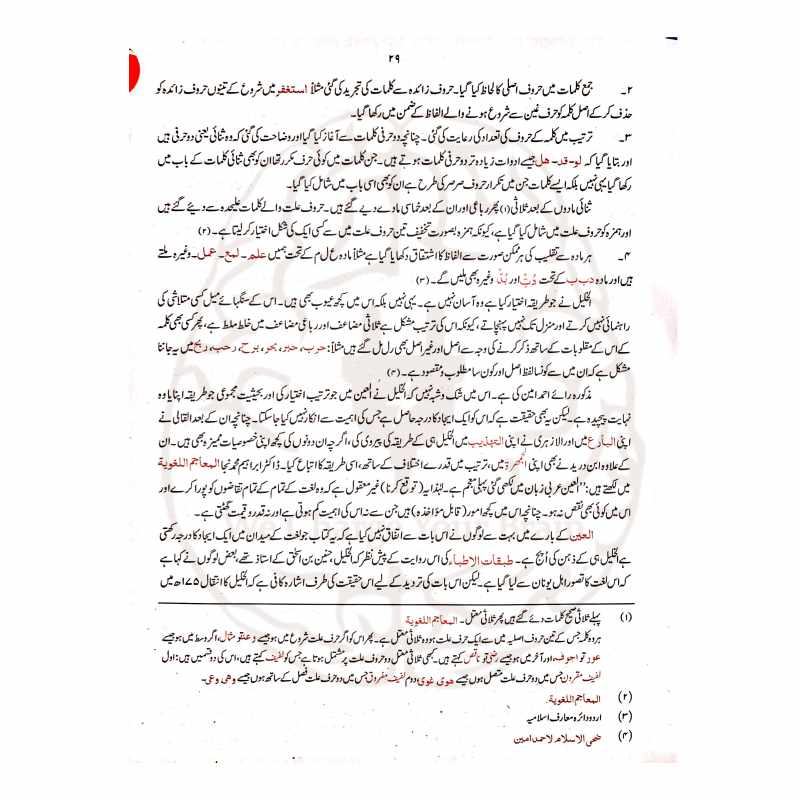 ۲۹
۲۔ جمع کلمات میں حروف اصلی کا لحاظ کیا گیا۔ حروف زائدہ سے کلمات کی تجرید کی گئی مثلاً استغفر میں شروع کے تینوں حروف زائدہ کو
حذف کر کے اصل کلمہ کو حرف غین سے شروع ہونے والے الفاظ کے ضمن میں رکھا گیا۔
۳۔ ترتیب میں کلمہ کے حروف کی تعداد کی رعایت کی گئی۔ چنانچہ دو حرفی کلمات سے آغاز کیا گیا اور وضاحت کی گئی کہ وہ ثنائی یعنی دو حرفی ہیں
اور بتایا گیا کہ لو۔ قد۔ ھل جیسے ادوات زیادہ تر دو حرفی کلمات ہوتے ہیں۔ جن کلمات میں کوئی حرف مکرر تھا ان کو بھی ثنائی کلمات کے باب میں
رکھا گیا یہی نہیں بلکہ ایسے کلمات جن میں تکرار حروف صرصر کی طرح ہے ان کو بھی اسی باب میں شامل کیا گیا۔
ثنائی مادوں کے بعد ثلاثی (۱) پھر رباعی اور ان کے بعد خماسی مادے دیے گئے ہیں۔ حروف علت والے کلمات علیحدہ سے دیئے گئے ہیں
اور ہمزہ کو حروف علت میں شامل کیا گیا ہے، کیونکہ ہمزہ بصورت تخفیف تین حروف علت میں سے کسی ایک کی شکل اختیار کر لیتا ہے۔ (۲)
۴۔ ہر مادہ سے تقلیب کی ہر ممکن صورت سے الفاظ کا اشتقاق دکھایا گیا ہے مثلاً مادہ ع ل م کے تحت ہمیں علم۔ لمع۔ عمل۔ وغیرہ ملتے
ہیں اور مادہ دب ب کے تحت دُبّ اور بُدّ وغیرہ بھی ملیں گے۔ (۳)
الخلیل نے جو طریقہ اختیار کیا ہے وہ آسان نہیں ہے۔ یہی نہیں بلکہ اس میں کچھ عیوب بھی ہیں۔ اس کے سنگہائے میل کسی متلاشی کی
راہنمائی نہیں کرتے اور منزل تک نہیں پہنچاتے، کیونکہ اس کی ترتیب مشکل ہے ثلاثی مضاعف اور رباعی مضاعف میں خلط ملط ہے، پھر کسی بھی کلمہ
کے اس کے مقلوبات کے ساتھ ذکر کرنے کی وجہ سے اصل اور غیر اصل بھی رل مل گئے ہیں مثلاً: حرب، حبر، بحر، برح، رحب، ربح میں یہ جاننا
مشکل ہے کہ ان میں سے کونسا لفظ اصل اور کون سا مطلوب و مقصود ہے۔ (۴)
مذکورہ رائے احمد امین کی ہے۔ اس میں شک و شبہ نہیں کہ الخلیل نے العین میں جو ترتیب اختیار کی اور بحیثیت مجموعی جو طریقہ اپنایا وہ
نہایت پیچیدہ ہے۔ لیکن یہ بھی حقیقت ہے کہ اس کو ایک ایجاد کا درجہ حاصل ہے جس کی اہمیت سے انکار نہیں کیا جا سکتا۔ چنانچہ ان کے بعد القالی نے
اپنی البارع میں اور الازہری نے اپنی التہذیب میں الخلیل ہی کے طریقہ کی پیروی کی، اگرچہ ان دونوں کی کچھ اپنی خصوصیات ممیزہ بھی ہیں۔ ان
کے علاوہ ابن درید نے بھی اپنی الجمھرۃ میں، ترتیب میں قدرے اختلاف کے ساتھ، اسی طریقہ کا اتباع کیا۔ ڈاکٹر ابراہیم محمد نجا المعاجم اللغویة
میں لکھتے ہیں: ’’العین عربی زبان میں لکھی گئی پہلی معجم ہے۔ لہٰذا یہ (توقع کرنا) غیر معقول ہے کہ وہ لغت کے تمام کے تمام تقاضوں کو پورا کرے اور
اس میں کوئی بھی نقص نہ ہو۔ چنانچہ اس میں کچھ امور (قابل مؤاخذہ) ہیں جس سے نہ اس کی اہمیت کم ہوتی ہے اور نہ قدر و قیمت گھٹتی ہے۔
العین کے بارے میں بہت سے لوگوں نے اس بات سے اتفاق نہیں کیا ہے کہ یہ کتاب جو لغت کے میدان میں ایک ایجاد کا درجہ رکھتی
ہے الخلیل ہی کے ذہن کی اُپج ہے۔ طبقات الاطباء کی اس روایت کے پیش نظر کہ الخلیل، حنین بن اسحٰق کے استاذ تھے، بعض لوگوں نے کہا ہے
کہ اس لغت کا تصور اہل یونان سے لیا گیا ہے۔ لیکن اس بات کی تردید کے لیے اس حقیقت کی طرف اشارہ کافی ہے کہ الخلیل کا انتقال ۱۷۵ھ میں
(۱) پہلے ثلاثی صحیح کلمات دئے گئے ہیں پھر ثلاثی معتل۔ المعاجم اللغویة
ہر وہ کلمہ جس کے تین حروف اصلیہ میں سے ایک حرف علت ہو وہ ثلاثی معتل ہے۔ پھر اس کو اگر حرف علت شروع میں ہو جیسے وعد تو مثال، اگر وسط میں ہو جیسے
عور تو اجوف، اور آخر میں ہو جیسے رضی تو ناقص کہتے ہیں۔ کبھی ثلاثی معتل دو حروف علت پر مشتمل ہوتا ہے جس کو لفیف کہتے ہیں، اس کی دو قسمیں ہیں: اول
لفیف مقرون جس میں دو حرف علت متصل ہوں جیسے ھوی غوی دوم لفیف مفروق جس میں دو حرف علت فصل کے ساتھ ہوں جیسے وھی وعی۔
(۲) المعاجم اللغویة۔
(۳) اردو دائرہ معارف اسلامیہ
(۴) ضحی الاسلام لاحمد امین